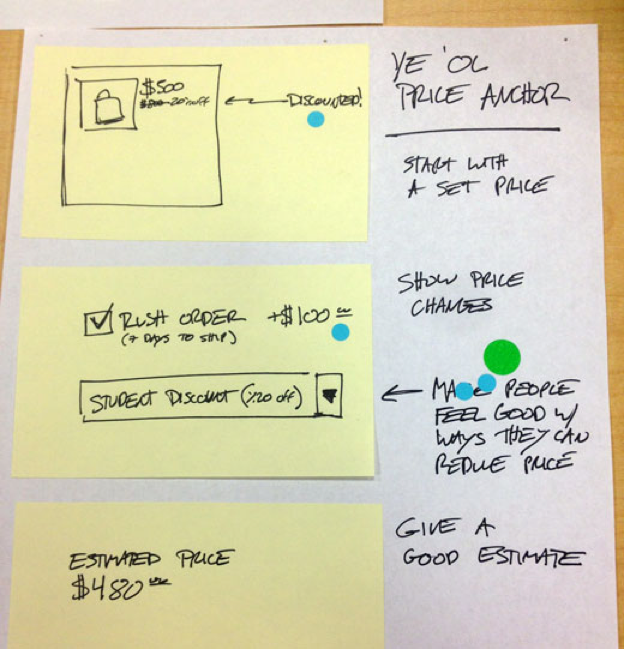 YE 'OL
PRICE ANCHOR
$500
20% off
DISCOUNTED!
START WITH
A SET PRICE
SHOW PRICE
CHANGES
RUSH ORDER +$100 00
(7 DAYS TO SHIP)
STUDENT DISCOUNT (%20 off)
MAKE PEOPLE
FEEL GOOD W/
WAYS THEY CAN
REDUCE PRICE
GIVE A
GOOD ESTIMATE
ESTIMATED PRICE
$480 00